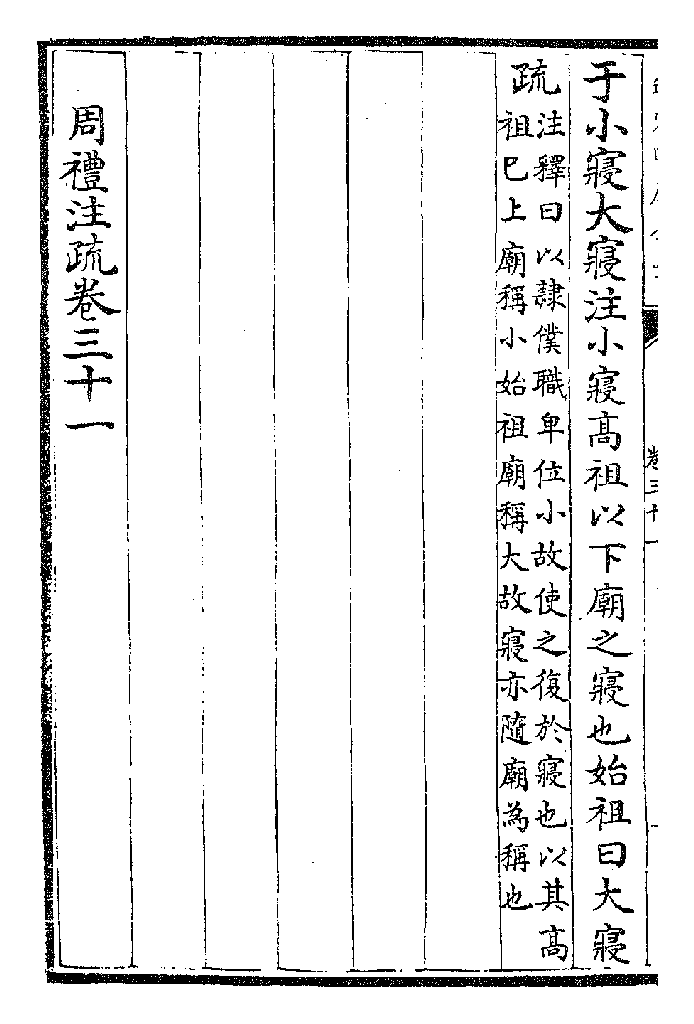 卷三十一
于小寢大寢注小寢髙祖以下廟之寢也始祖曰大寢
疏注釋曰以隷僕職卑位小故使之復於寢也以其髙
祖巳上廟稱小始祖廟稱大故寢亦隨廟為稱也
周禮注疏卷三十一